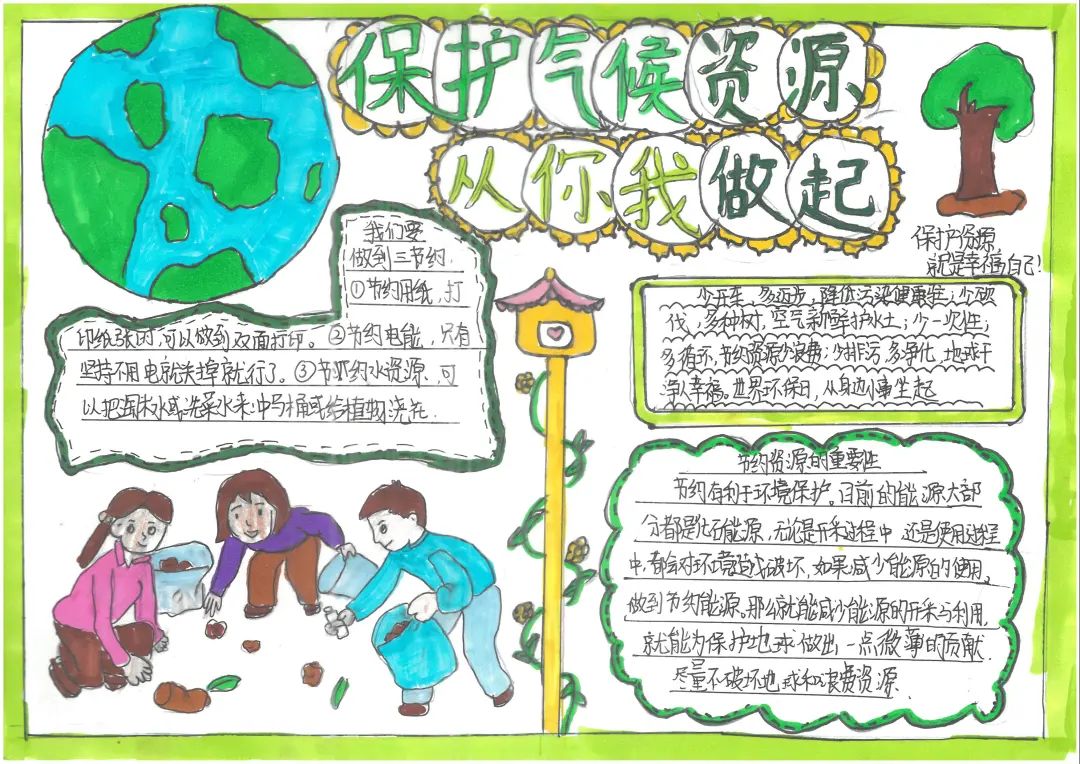 保护气候资源
从你我做起
保护资源,
就是幸福自己!
我们要
做到三节约.
①节约用纸,打
印纸张时,可以做到双面打印。②节约电能,只有
坚持不用电就关掉就行了。③节约水资源,可
以把淘米水或洗菜水来冲马桶或给植物浇花.
少开车,多迈步,降低污染健康性;少砍
伐,多种树,空气新鲜护水土;少一次性;
多循环,节约资源少浪费;少排污,多净化,地球干
净人幸福。世界环保日,从身边小事生起
节约资源的重要性
节约有利于环境保护。目前的能源大部
分都是化石能源,无论是开采过程中,还是使用过程
中,都会对环境造成破坏,如果减少能源的使用。
做到节约能源、那么就能减少能源的开采与利用,
就能为保护地球做出一点微薄的贡献.
尽量不破坏地球和浪费资源.